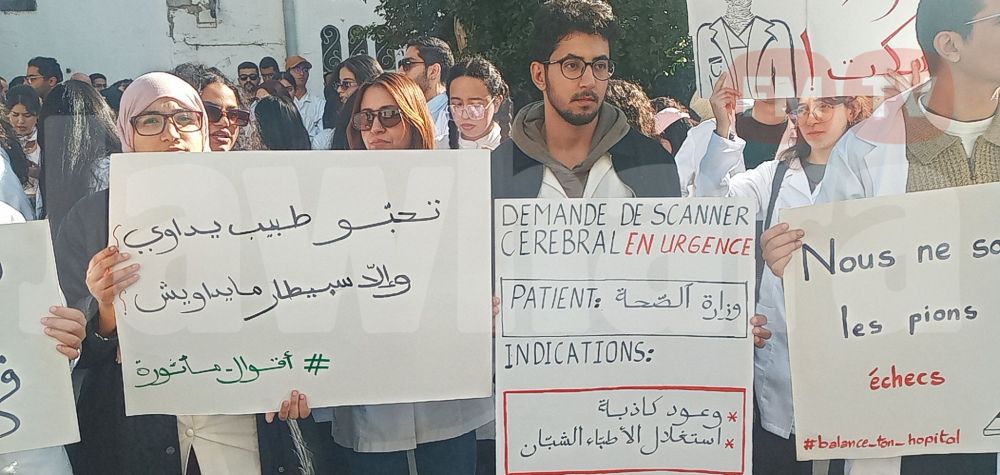 تحبّو طبيب يداوي؟
وإلاّ سبيطار مايداويش؟
# أقوال_مأثورة
DEMANDE DE SCANNER
CEREBRAL EN URGENCE
PATIENT: وزارة الصّحة
INDICATIONS:
* وعود كاذبة
* استغلال الأطبّاء الشبّان
Nous ne so
les pions
échecs
#balance_ton_hopital